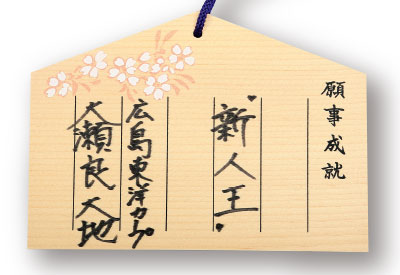 願事成就
新人王
広島東洋カープ
大瀬良大地